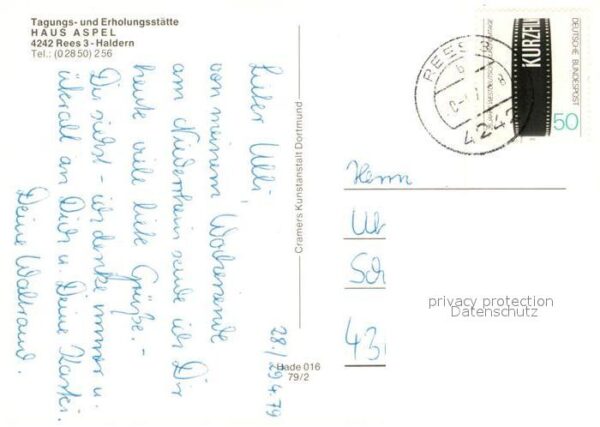 Tagungs- und Erholungsstätte
HAUS ASPEL
4242 Rees 3 - Haldern
Tel.: (0 28 50) 2 56
28./29.4.79
Lieber Ulli,
von meinem Wochenende
am Niederrhein sende ich Dir
heute viele liebe Grüße. -
Du siehst - ich denke immer u.
überall an Dich u. Deine Karten.
Deine Waltraud.
Cramers Kunstanstalt Dortmund
Hade 016
79/2
REES
4242
KURZFIL
DEUTSCHE BUNDESPOST
50
Herrn
Ul
Sch
43
privacy protection
Datenschutz